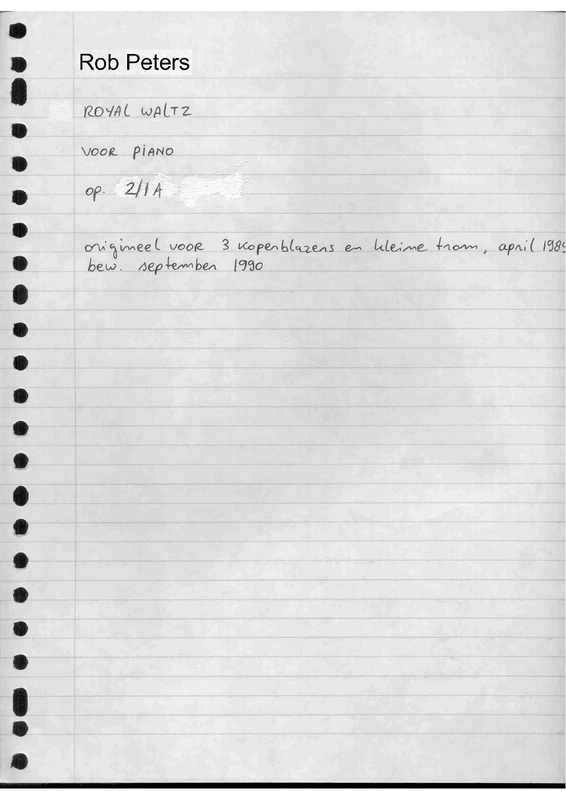 Rob Peters
ROYAL WALTZ
VOOR PIANO
op. 2/1A
origineel voor 3 koperblazers en kleine trom, april 1989
bew. september 1990